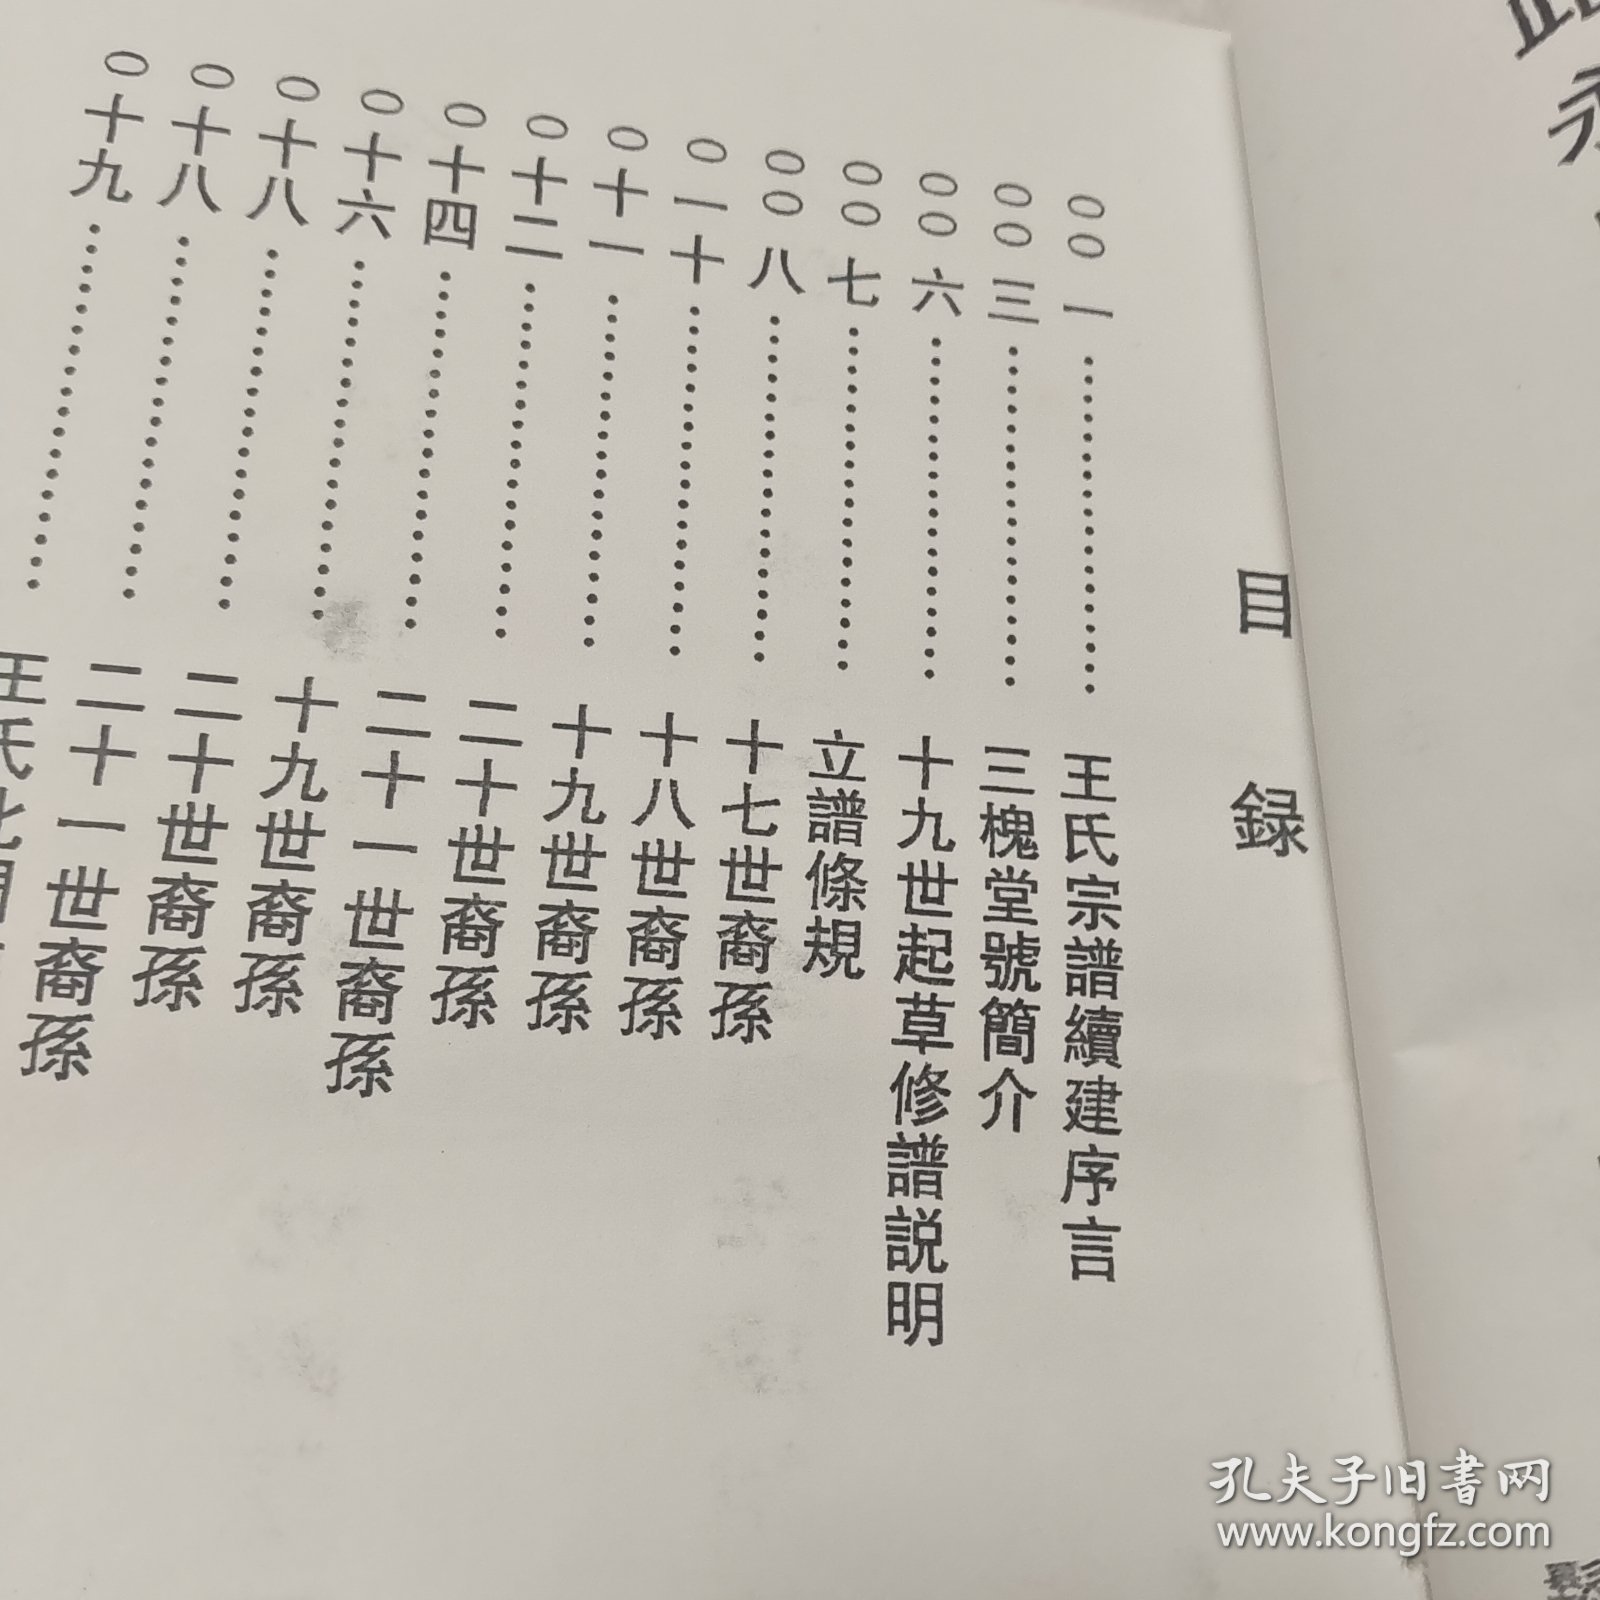 目録
〇〇一………………王氏宗譜續建序言
〇〇三………………三槐堂號簡介
〇〇六………………十九世起草修譜説明
〇〇七………………立譜條規
〇〇八………………十七世裔孫
〇一十………………十八世裔孫
〇十一………………十九世裔孫
〇十二………………二十世裔孫
〇十四………………二十一世裔孫
〇十六………………十九世裔孫
〇十八………………二十世裔孫
〇十八………………二十一世裔孫
〇十九………………王氏
孔夫子旧書网
www.kongfz.com